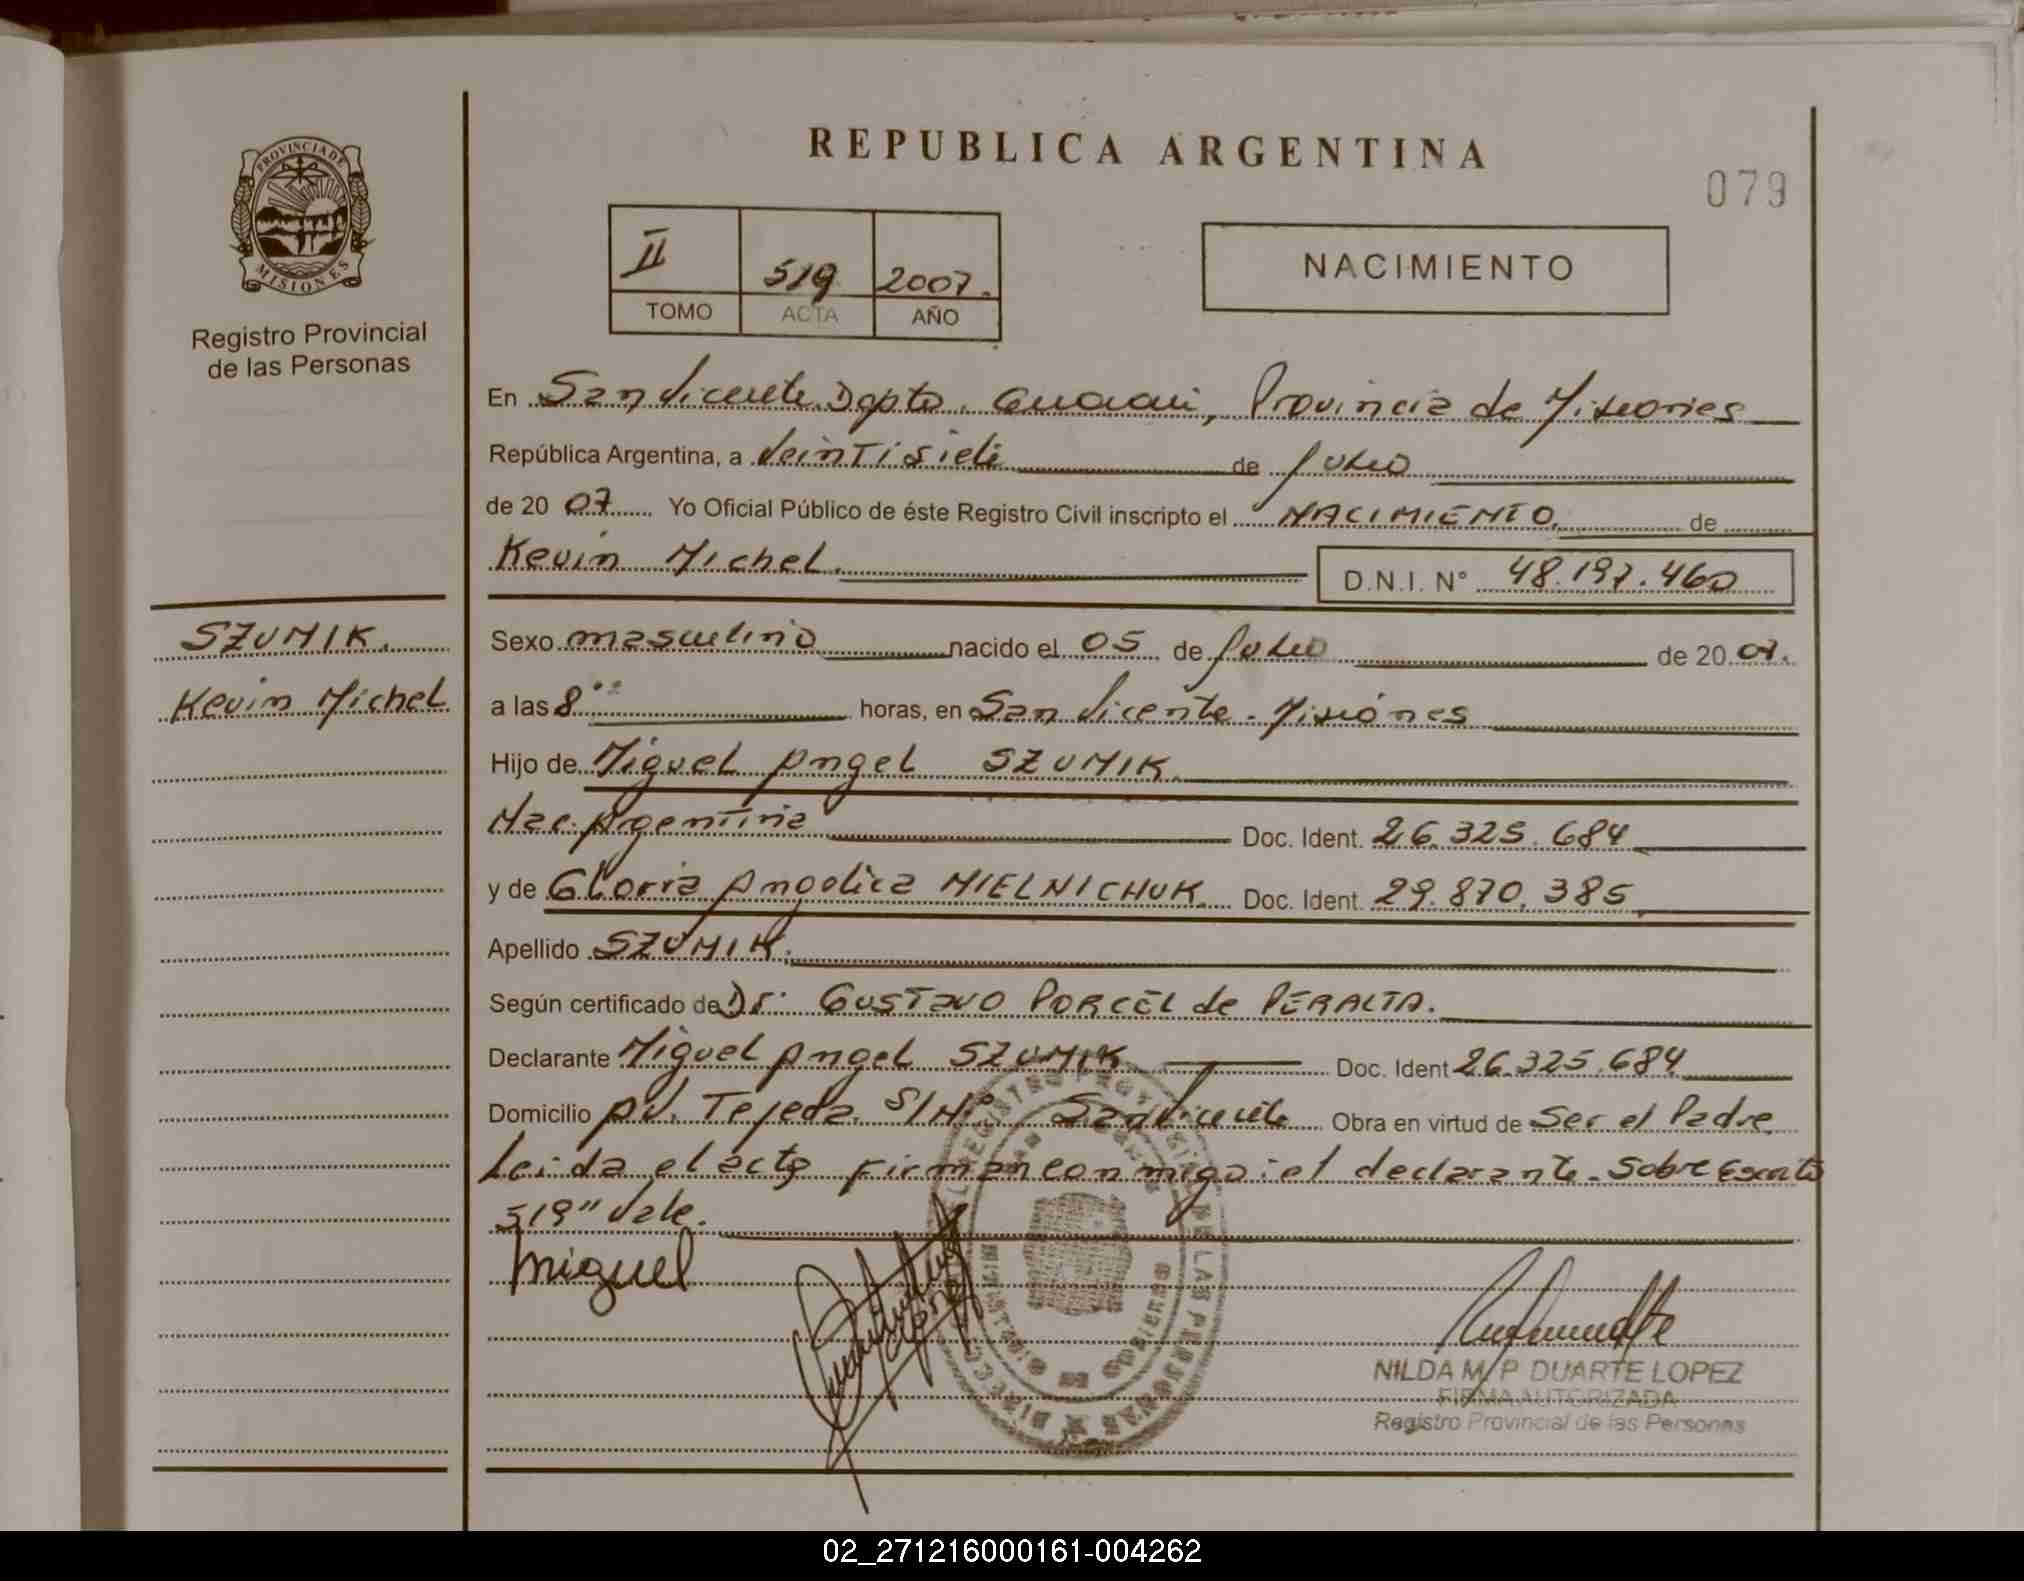 REPUBLICA ARGENTINA
079
PROVINCIA DE
MISIONES
Registro Provincial
de las Personas
II 519 2007.
TOMO ACTA AÑO
NACIMIENTO
En San Vicente Dpto. Guarani, Provincia de Misiones
República Argentina, a Veintisiete de Julio
de 20 07 Yo Oficial Público de éste Registro Civil inscripto el NACIMIENTO de
Kevin Michel. D.N.I. N° 48.197.460
SZUMIK.
Kevin Michel
Sexo masculino nacido el 05 de Julio de 20 07.
a las 8 horas, en San Vicente - Misiones
Hijo de Miguel Angel SZUMIK.
Nac. Argentina Doc. Ident. 26.325.684
y de Gloria Angelica MIELNICHUK. Doc. Ident. 29.870.385
Apellido SZUMIK.
Según certificado de Dr. GUSTAVO PORCEL de PERALTA.
Declarante Miguel Angel SZUMIK Doc. Ident 26.325.684
Domicilio Av. Tejeda S/Nº San Vicente Obra en virtud de Ser el Padre
Leida el acta firman conmigo: el declarante - Sobre Escrito
519" Vale.
miguel
NILDA M. P. DUARTE LOPEZ
FIRMA AUTORIZADA
Registro Provincial de las Personas
02_271216000161-004262